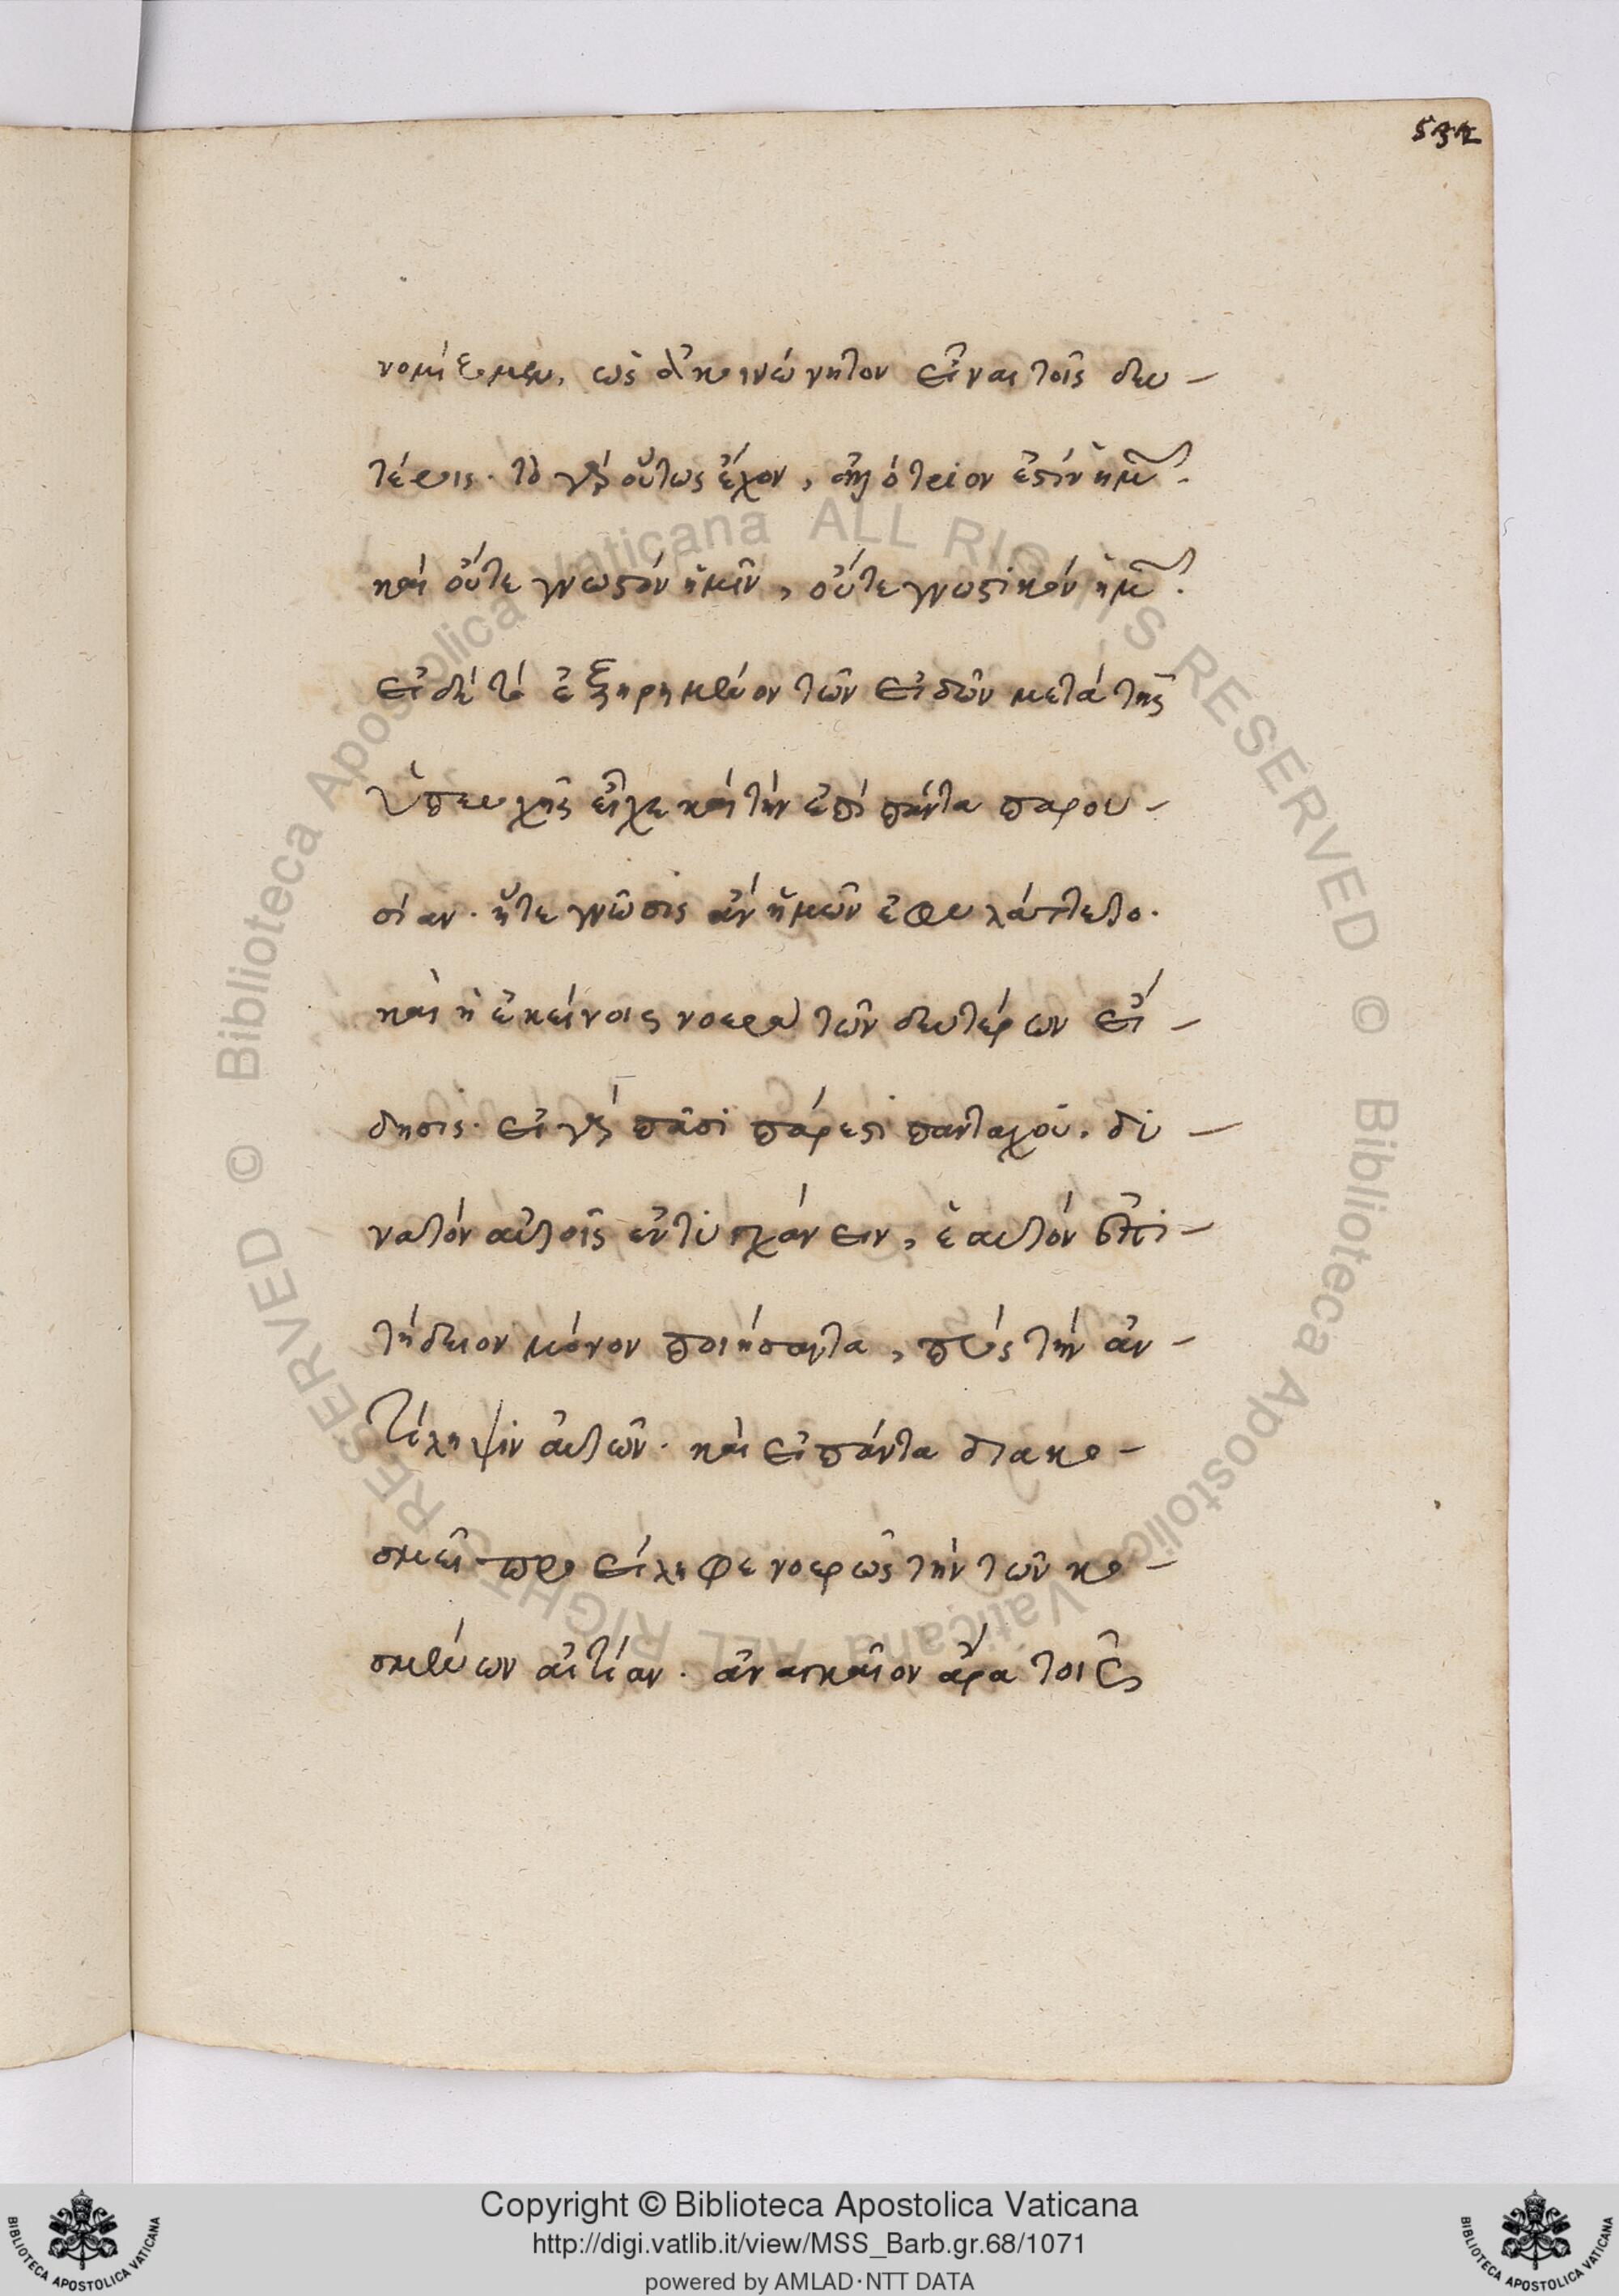 532
νομίζομεν, ὡς ἀκοινώνητον εἶναι τοῖς δευ-
τέροις. τὸ γὰρ οὕτως ἔχον, ἀλλότριον ἐστὶν ἡμῶν.
καὶ οὔτε γνωστὸν ἡμῖν, οὔτε γνωστικὸν ἡμῶν.
εἰ δὴ τὸ ἐξῃρημένον τῶν εἰδῶν μετὰ τῆς
ὑπεροχῆς εἶχε καὶ τὴν ἐπὶ πάντα παρου-
σίαν. ἥτε γνῶσις ἂν ἡμῶν ἐφυλάττετο.
καὶ ἡ ἐκείνοις νοερὰ τῶν δευτέρων εἴ-
δησις. εἰ γὰρ πᾶσι πάρεστι πανταχοῦ. δυ-
νατὸν αὐτοῖς ἐντυγχάνειν, ἑαυτὸν ἐπι-
τήδειον μόνον ποιήσαντα, πρὸς τὴν ἀν-
τίληψιν αὐτῶν. καὶ εἰ πάντα διακο-
σμεῖ προείληφε νοερῶς τὴν τῶν κο-
σμένων αἰτίαν. ἀναγκαῖον ἄρα τοῖς
Copyright © Biblioteca Apostolica Vaticana
http://digi.vatlib.it/view/MSS_Barb.gr.68/1071
powered by AMLAD·NTT DATA
BIBLIOTECA APOSTOLICA VATICANA
BIBLIOTECA APOSTOLICA VATICANA
© Biblioteca Apostolica Vaticana ALL RIGHTS RESERVED
© Biblioteca Apostolica Vaticana ALL RIGHTS RESERVED